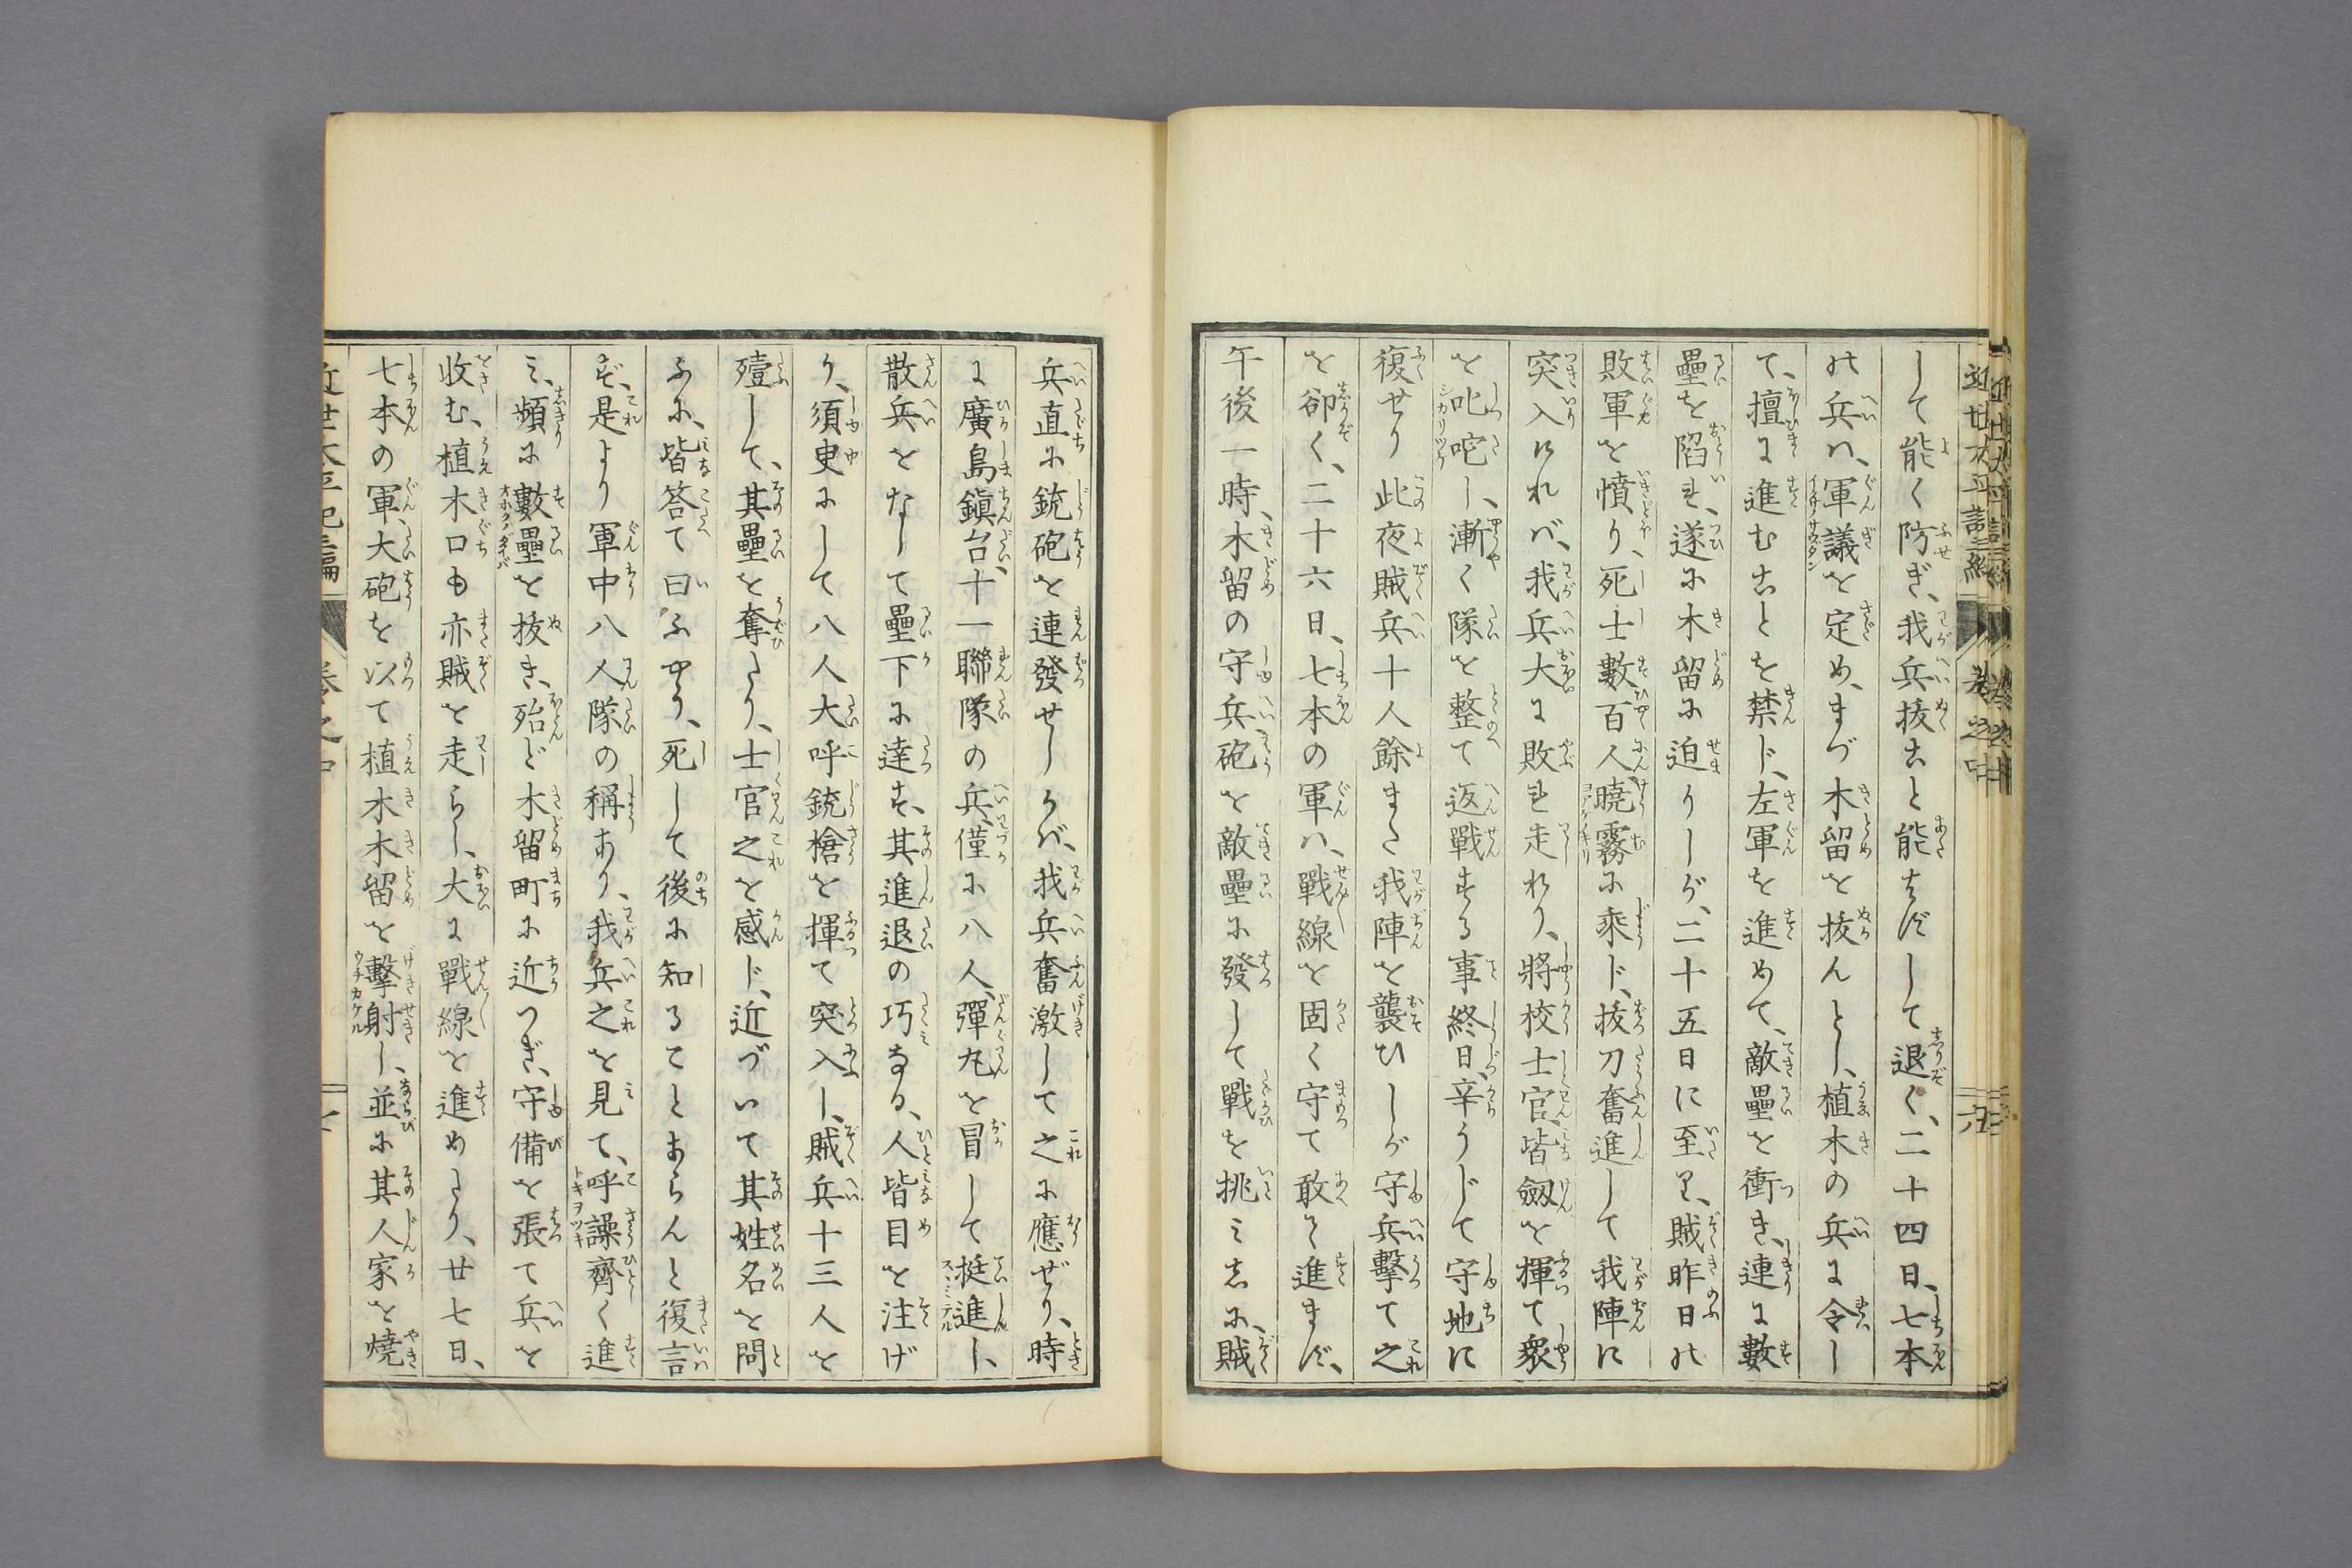 して能く防ぎ、我兵抜こと能はずして退く、二十四日、七本
の兵ハ、軍議を定め、まづ木留を抜んとし、植木の兵に令し
て、擅に進むことを禁ド、左軍を進めて、敵壘を衝き、連に數
壘を陷れ、遂に木留に迫りしが、二十五日に至り、賊昨日の
敗軍を憤り、死士數百人、曉霧に乘ド、抜刀奮進して我陣に
突入けれバ、我兵大に敗れ走れり、將校士官、皆劔を揮て衆
を叱咤し、漸く隊を整て返戰する事終日、辛うじて守地に
復せり此夜賊兵十人餘また我陣を襲ひしが守兵擊て之
を卻く、二十六日、七本の軍ハ、戰線を固く守て敢て進まず、
午後一時、木留の守兵、砲を敵壘に發して戰を挑みしに、賊
兵直に銃砲を連發せしかバ、我兵奮激して之に應ぜり、時
に廣島鎭台、十一聯隊の兵、僅に八人、彈丸を冒して挺進し、
散兵をなして壘下に達す、其進退の巧なる、人皆目を注げ
り、須臾にして八人大呼銃槍を揮て突入し、賊兵十三人を
殪して、其壘を奪たり、士官之を感ド、近づいて其姓名を問
ふに、皆答て曰ふやう、死して後に知ることあらんと復言
ず、是より軍中八人隊の稱あり、我兵之を見て、呼譟齊く進
み、頻に數壘を抜き、殆ど木留町に近つぎ、守備を張て兵を
收む、植木口も亦賊を走らし、大に戰線を進めたり、廿七日、
七本の軍、大砲を以て植木木留を擊射し、並に其人家を燒